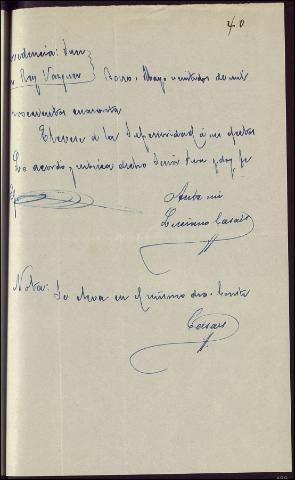 40
Providencia: Juez
Rey Vazquez } Boiro, Mayo veintidos de mil
novecientos cuarenta
Elevese a la Superioridad a sus efectos
Lo acordó y rubrica dicho Señor Juez y doy fe
Ante mi
Luciano Casais
Nota: Se eleva en el mismo dia. Conste
Casais